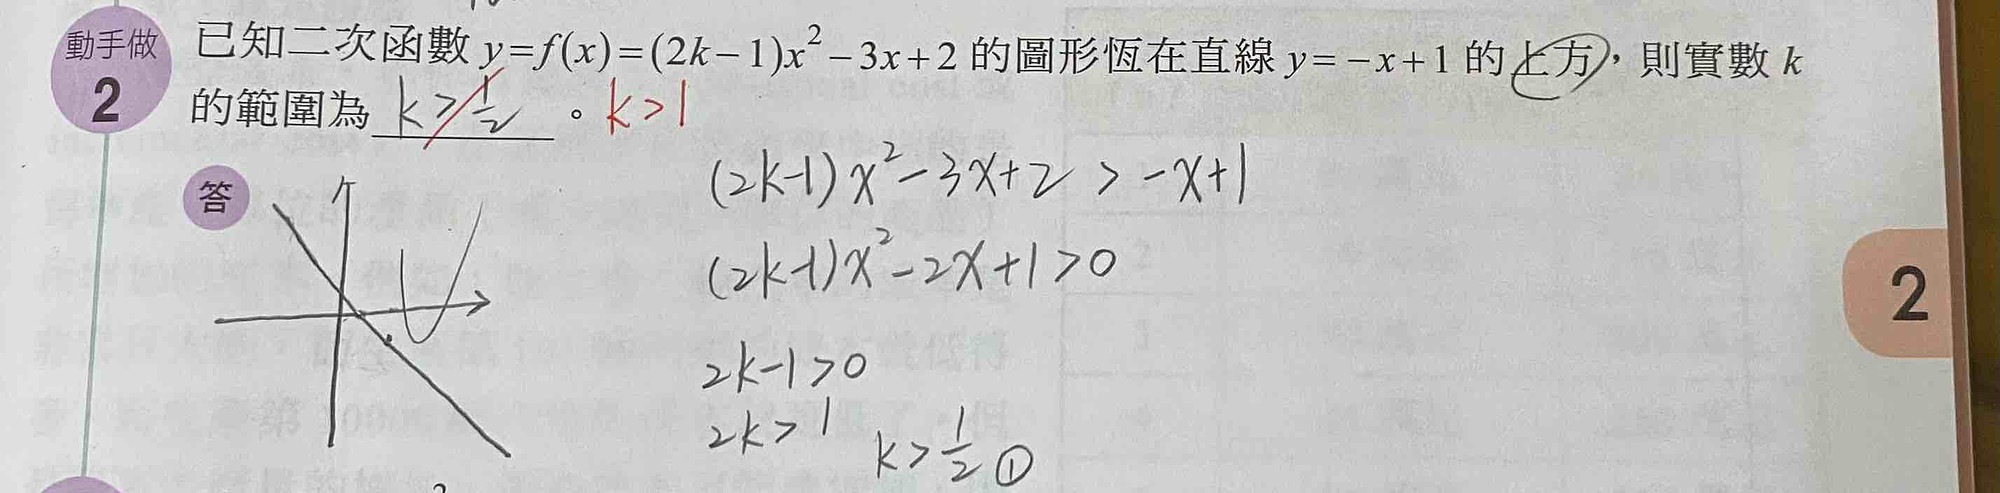 動手做
2
已知二次函數 y=f(x)=(2k−1)x²−3x+2 的圖形恆在直線 y=−x+1 的上方，則實數 k
的範圍為 k>1/2 。 k>1
答
(2k-1)x²-3x+2 > -x+1
(2k-1)x²-2x+1>0
2k-1>0
2k>1 k>1/2 ①
2